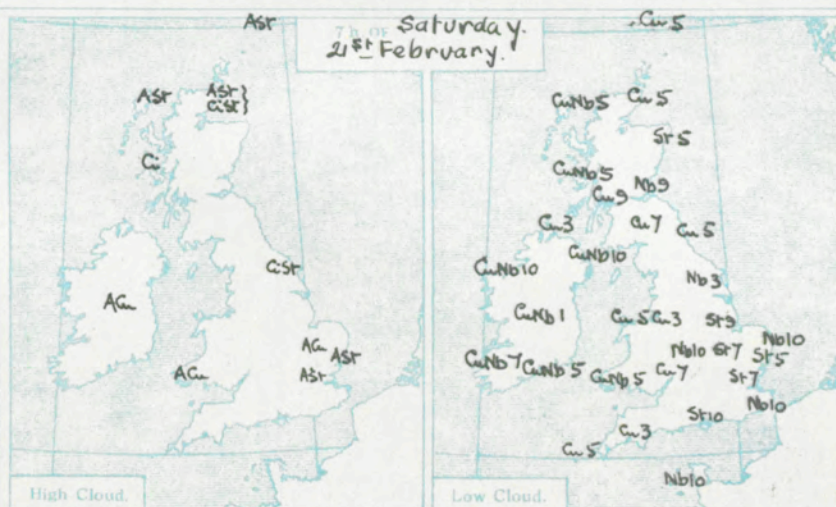 7 h. OF Saturday.
21st February.
ASt
ASt
ASt }
CiSt }
Ci
CiSt
ACu
ACu
ASt
ACu
ASt
High Cloud.
Cu 5
CuNb 5
Cu 5
St 5
CuNb 5
Nb 9
Cu 9
Cu 3
Cu 7
Cu 5
CuNb 10
CuNb 10
Nb 3
CuNb 1
Cu 5
Cu 3
St 9
Nb 10
Nb 10
St 7
St 5
CuNb 7
CuNb 5
CuNb 5
Cu 7
St 7
Nb 10
St 10
Cu 3
Cu 5
Nb 10
Low Cloud.